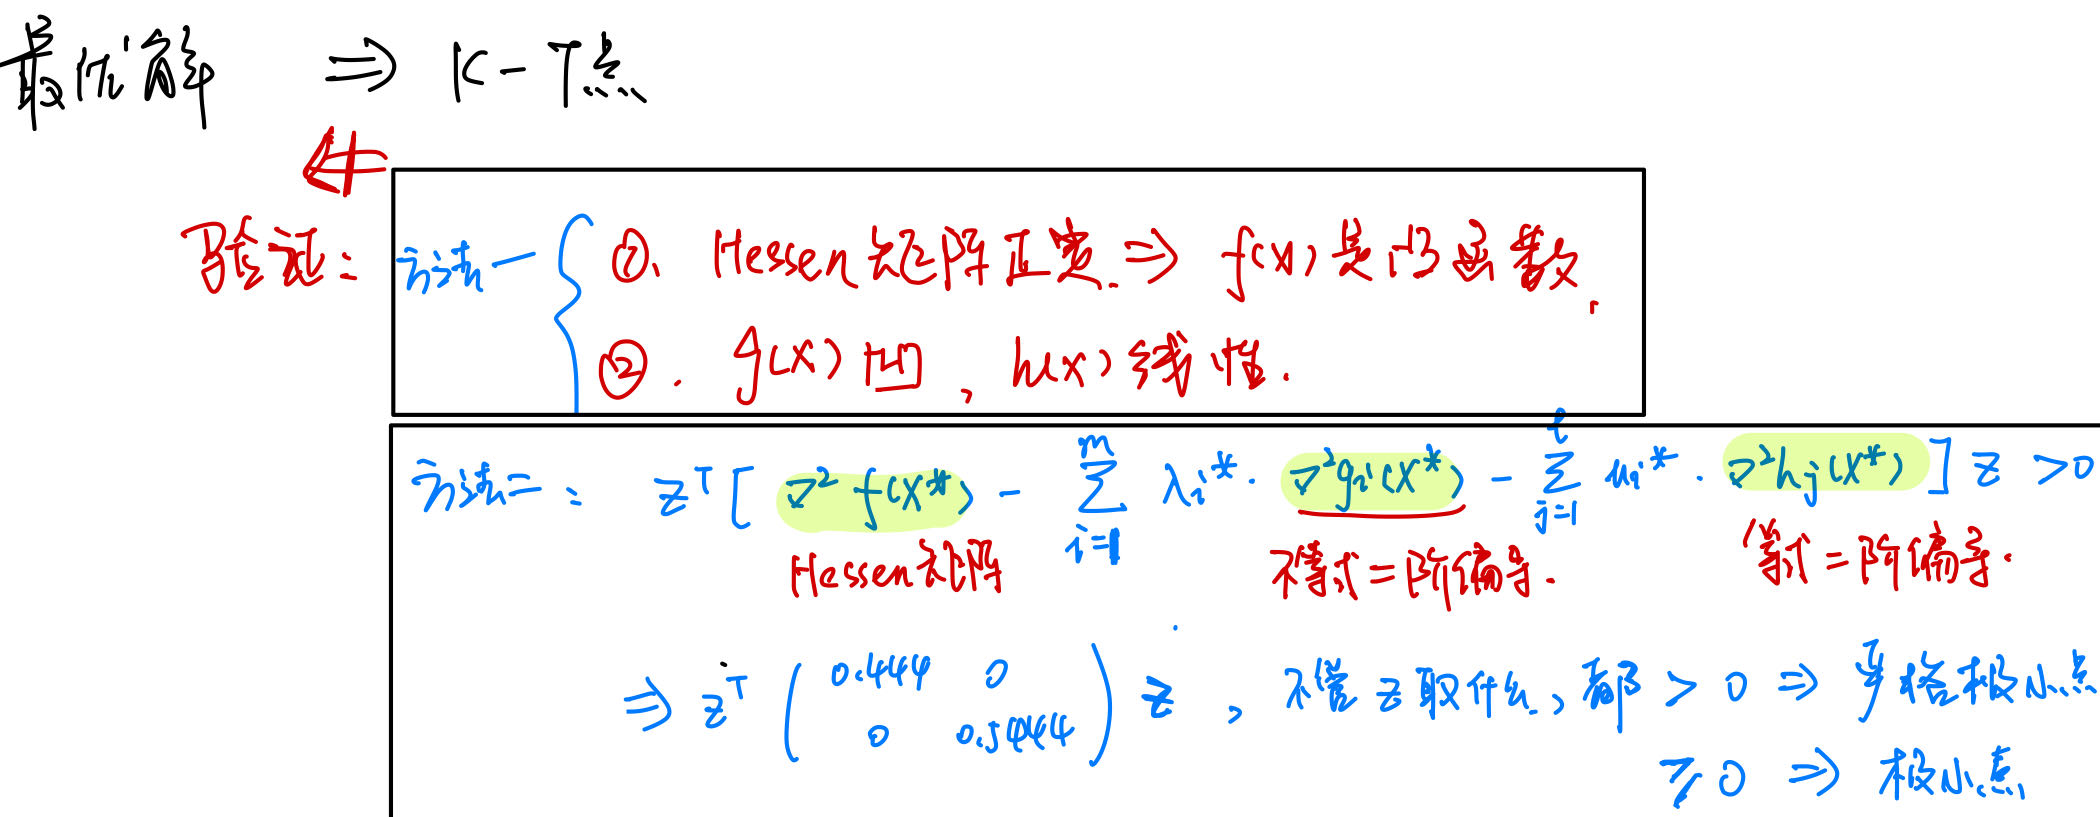 最优解 ⇒ K-T点
⇍
验证: 方法一 { ①. Hessen矩阵正定. ⇒ f(x)是凸函数.
②. g(x)凹, h(x)线性.
方法二: z^T [ ∇²f(x*) - Σ_{i=1}^{m} λi* · ∇²gi(x*) - Σ_{j=1}^{l} ui* · ∇²hj(x*) ] z > 0
Hessen矩阵 不等式二阶偏导. 等式二阶偏导.
⇒ z^T ( 0.444 0 ; 0 0.5444 ) z, 不管z取什么, 都 > 0 ⇒ 严格极小点
≥ 0 ⇒ 极小点